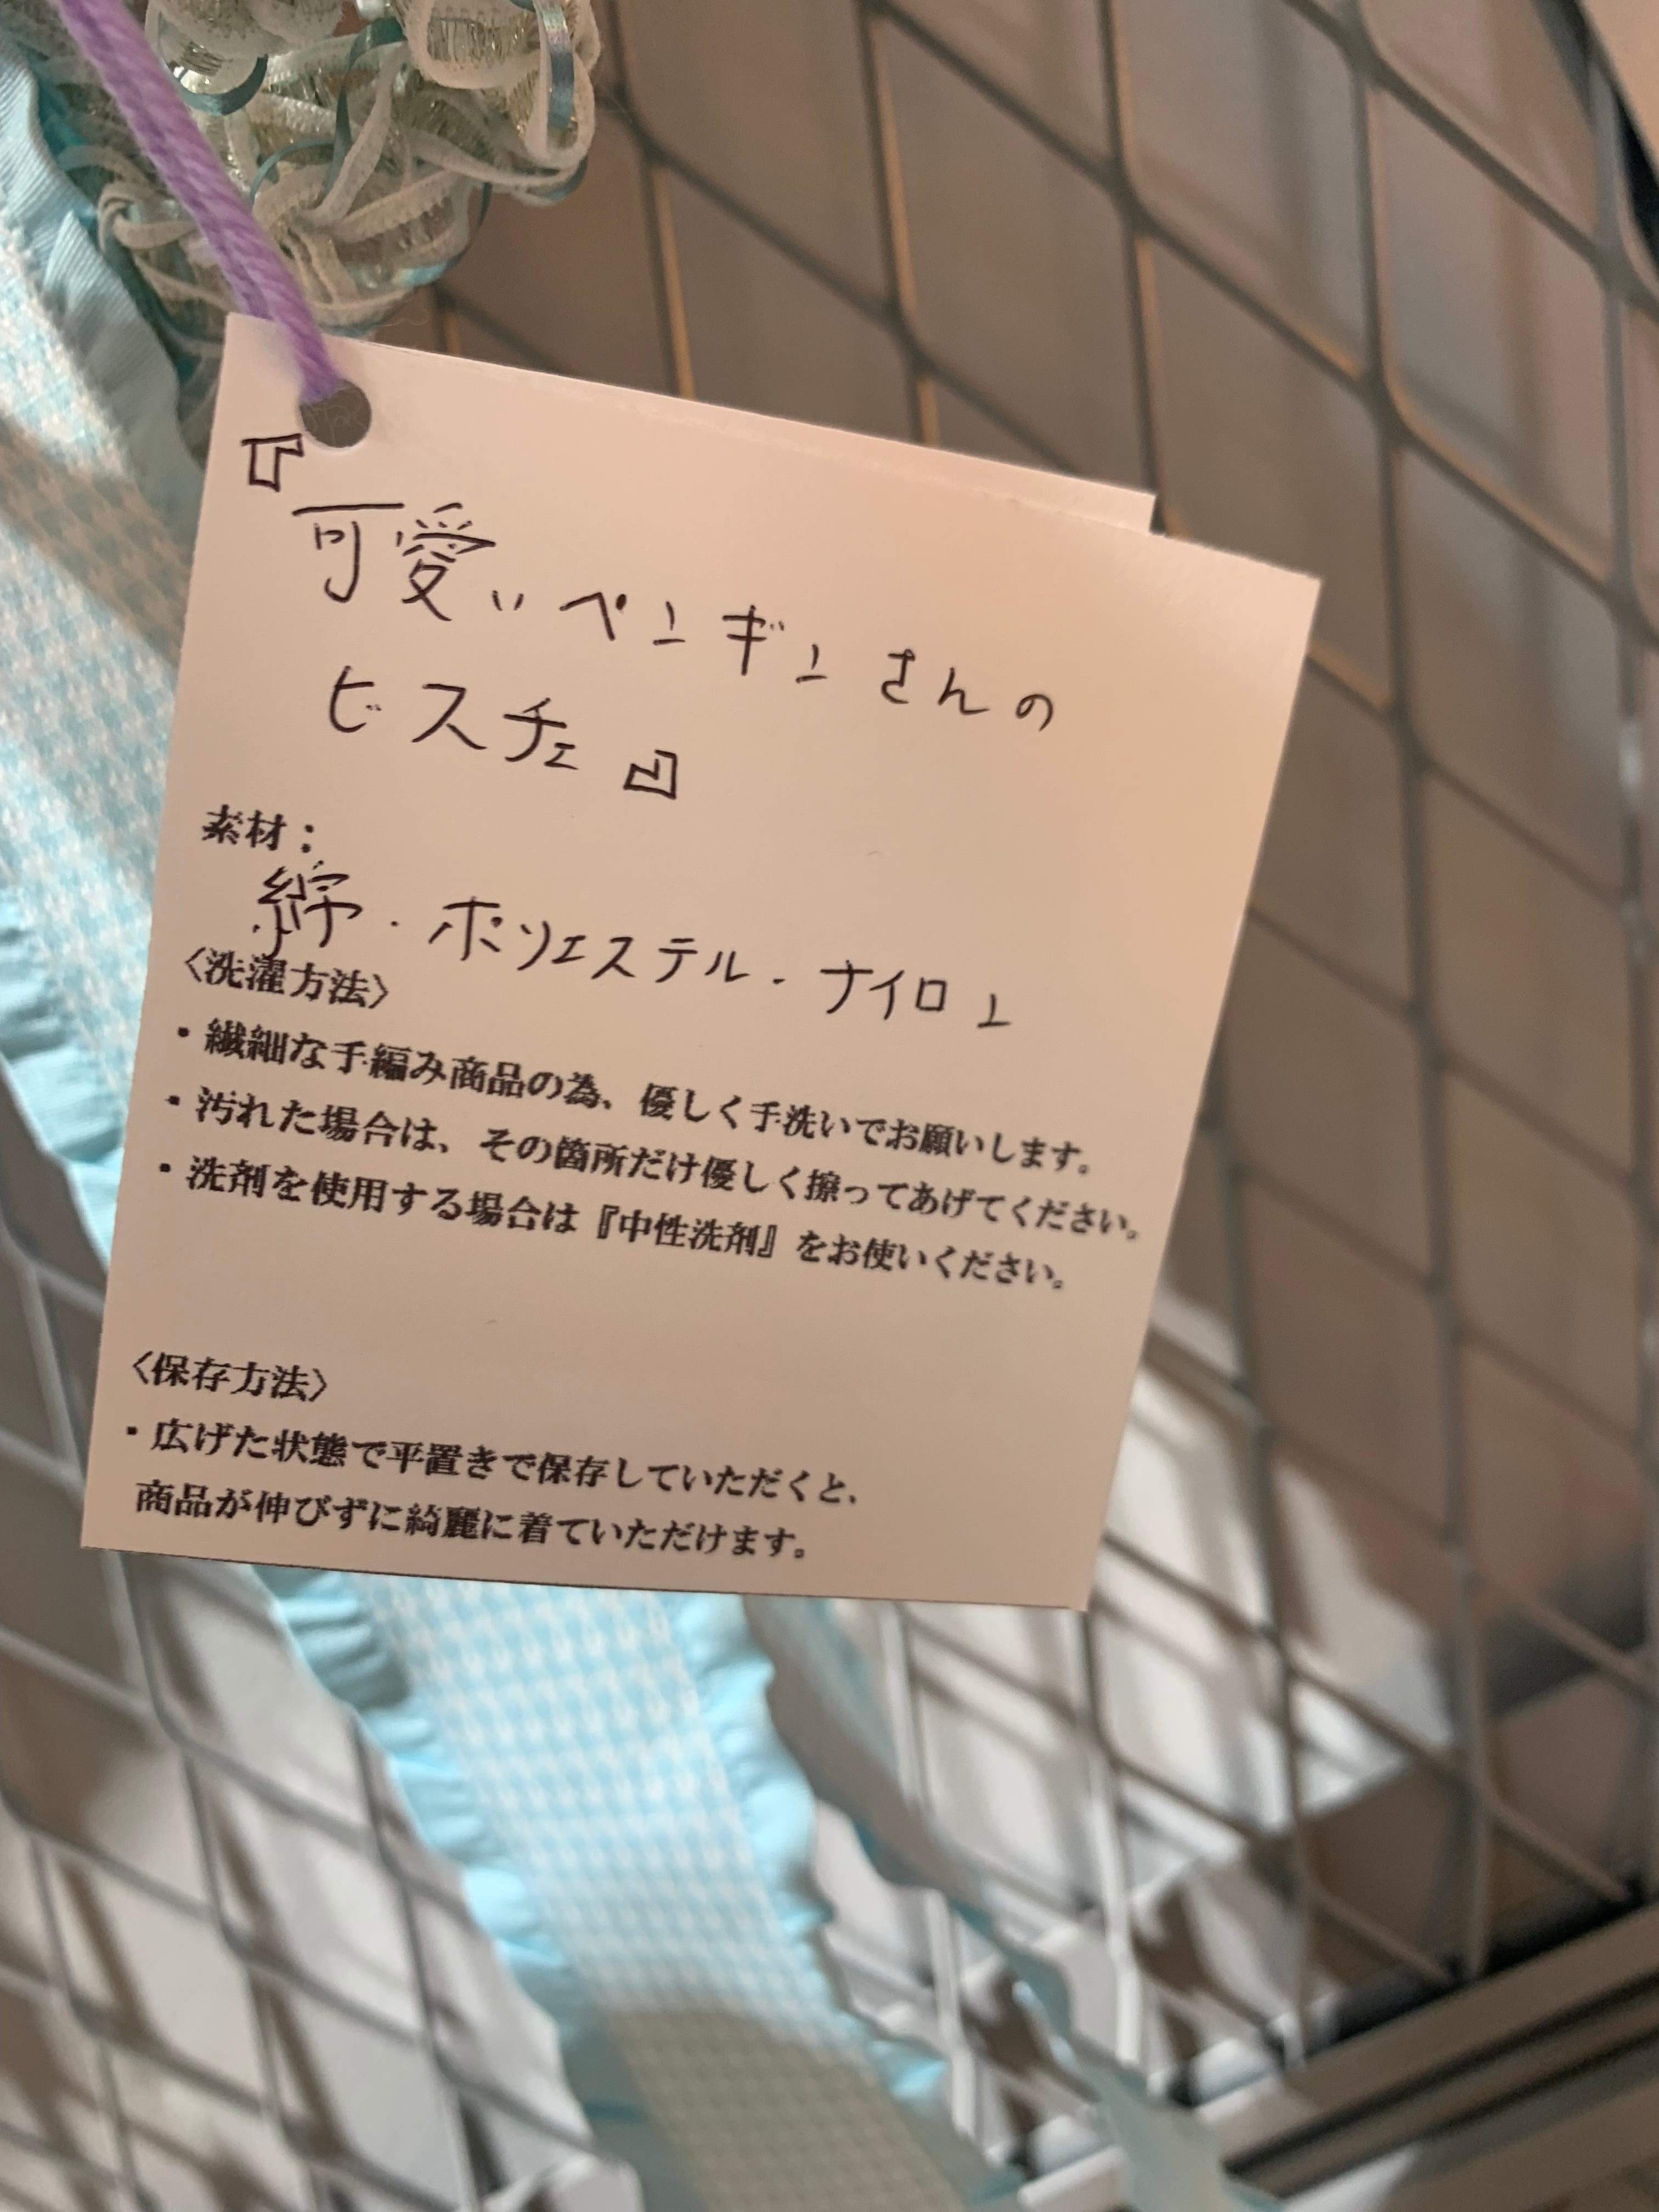 『可愛いペンギンさんの
ビスチェ』
素材：
綿・ポリエステル・ナイロン
〈洗濯方法〉
・繊細な手編み商品の為、優しく手洗いでお願いします。
・汚れた場合は、その箇所だけ優しく擦ってあげてください。
・洗剤を使用する場合は『中性洗剤』をお使いください。
〈保存方法〉
・広げた状態で平置きで保存していただくと、
商品が伸びずに綺麗に着ていただけます。